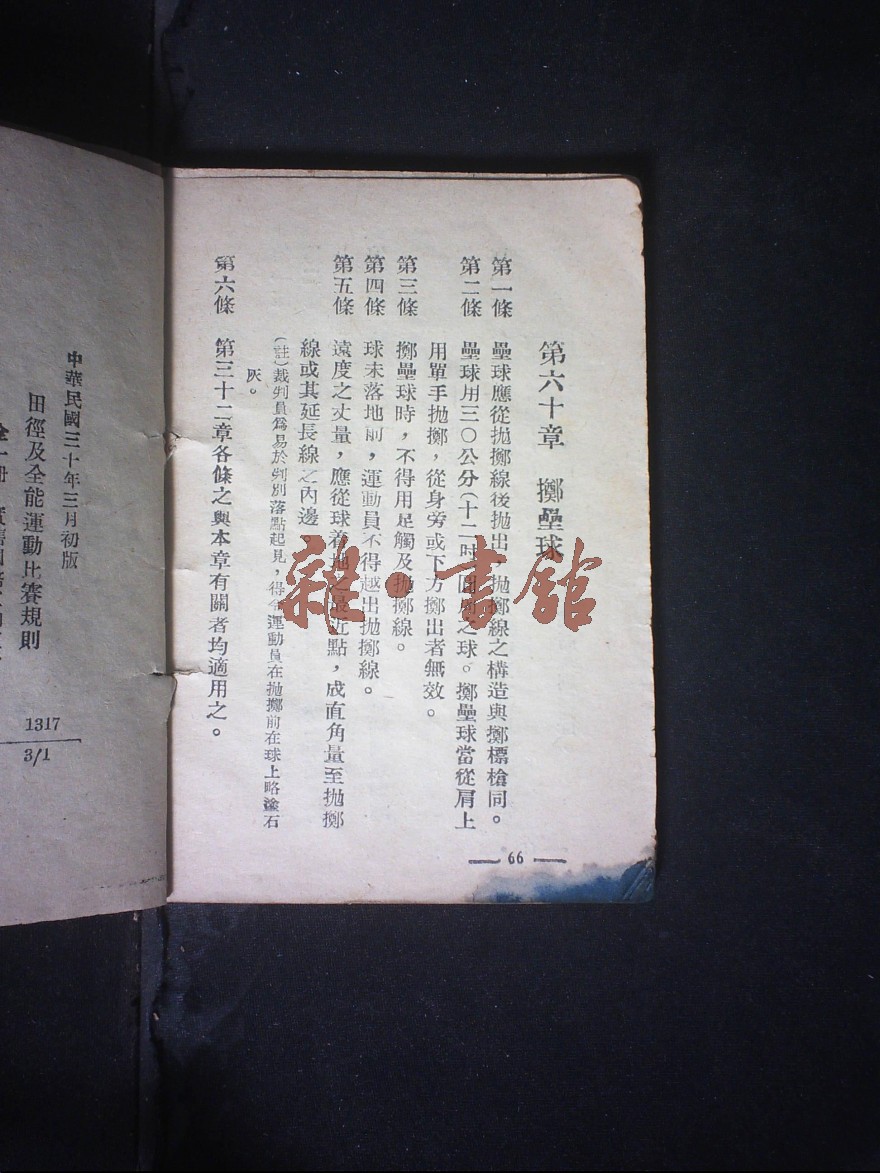 第六十章　擲壘球
第一條　壘球應從拋擲線後拋出，拋擲線之構造與擲標槍同。
第二條　壘球用三〇公分(十二吋)圓周之球。擲壘球當從肩上
用單手拋擲，從身旁或下方擲出者無效。
第三條　擲壘球時，不得用足觸及拋擲線。
第四條　球未落地前，運動員不得越出拋擲線。
第五條　遠度之丈量，應從球着地之最近點，成直角量至拋擲
線或其延長線之內邊。
(註)裁判員爲易於判別落點起見，得令運動員在拋擲前在球上略塗石
灰。
第六條　第三十二章各條之與本章有關者均適用之。
— 66 —
雜·書館
中華民國三十年三月初版
田徑及全能運動比賽規則
全一冊
1317
3/1